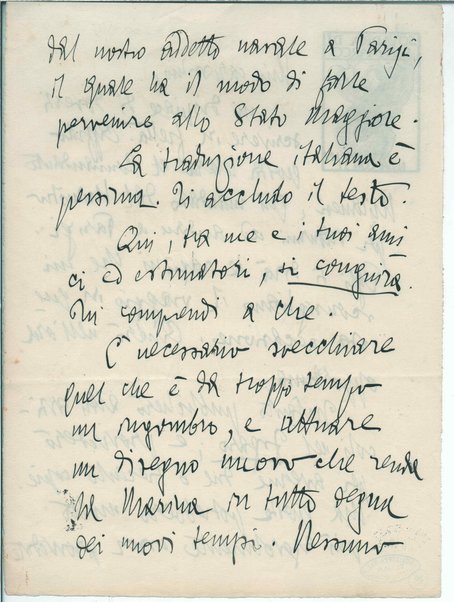 dal nostro addetto navale a Parigi,
il quale ha il modo di farle
pervenire allo Stato Maggiore.
La traduzione italiana è
pessima. Ti accludo il testo.
Qui, tra me e i tuoi ami
ci ed estimatori, si congiura.
Tu comprendi a che.
È necessario svecchiare
quel che è da troppo tempo
un ingombro, e attuare
un disegno nuovo che renda
la Marina in tutto degna
dei nuovi tempi. Nessuno